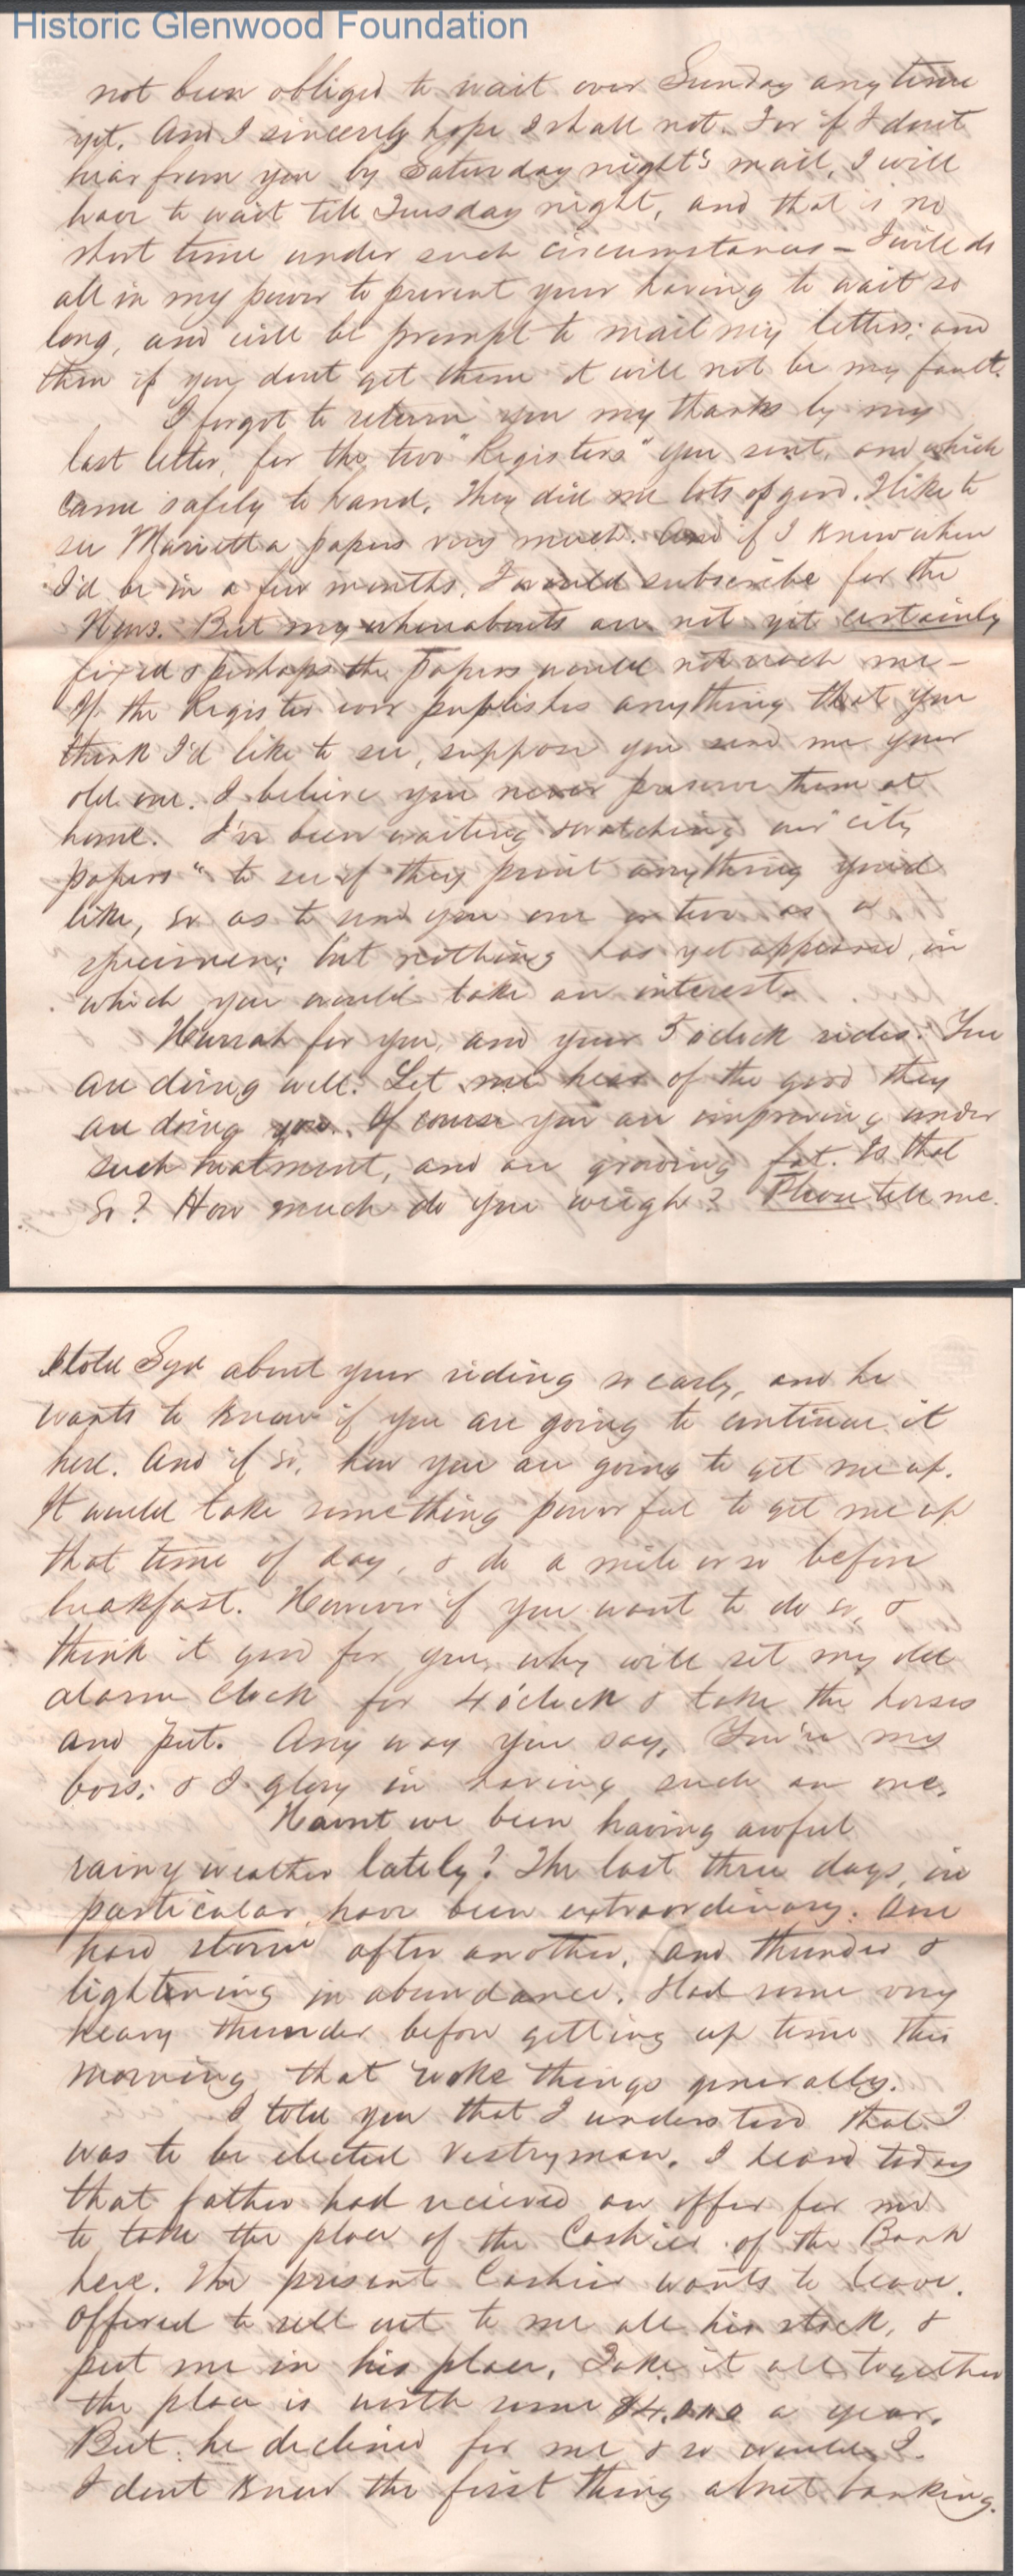 Historic Glenwood Foundation
not been obliged to wait over Sunday any time
yet. And I sincerely hope I shall not. For if I don't
hear from you by Saturday night's mail, I will
have to wait till Tuesday night, and that is no
short time under such circumstances – I will do
all in my power to prevent your having to wait so
long, and will be prompt to mail my letters; and
then if you dont get them it will not be my fault.
I forgot to return you my thanks by my
last letter, for the two "Registers" you sent, and which
came safely to hand. They did me lots of good. I like to
see Marietta papers very much. And if I knew where
I'd be in a few months, I would subscribe for the
News. But my whereabouts are not yet certainly
fixed & perhaps the papers would not reach me –
If the Register ever puplishes anything that you
think I'd like to see, suppose you send me your
old one. I believe you never preserve them at
home. I've been waiting & watching our "city
papers" to see if they print anything you'd
like, so as to send you one or two as a
specimen; but nothing has yet appeared, in
which you would take an interest.
Hurrah for you, and your 5 o'clock rides! You
are doing well. Let me hear of the good they
are doing you. Of course you are improving under
such treatment, and are growing fat. Is that
so? How much do you weigh? Please tell me.
I told Syd about your riding so early, and he
wants to know if you are going to continue it
here. And if so, how you are going to get me up.
It would take something powerful to get me up
that time of day, & do a mile or so before
breakfast. However if you want to do so, &
think it good for you, why will set my old
alarm clock for 4 o'clock & take the horses
and put. Any way you say. You're my
boss; & I glory in having such an one.
Haint we been having awful
rainy weather lately? The last three days, in
particular, have been extraordinary. One
hard storm after another, and thunder &
lightening in abundance. Had some very
heavy thunder before getting up time this
morning that woke things generally.
I told you that I understood that I
was to be elected Vestryman. I heard today
that father had recieved an offer for me
to take the place of the Cashier of the Bank
here. The present Cashier wants to leave.
Offered to sell out to me all his stock, &
put me in his place. Take it all together
the place is worth some $4,000 a year.
But he declined for me & so would I.
I dont know the first thing about banking.